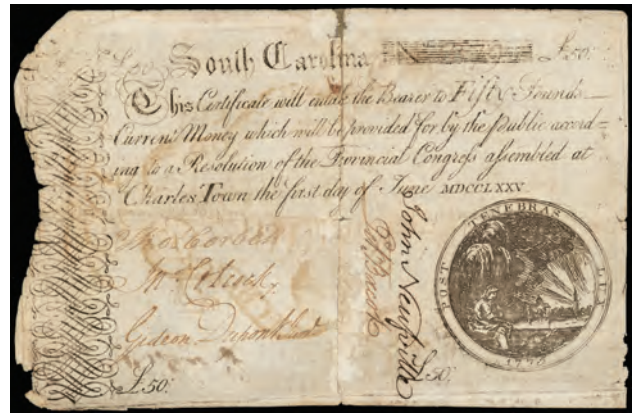 South Carolina £50.
This Certificate will entitle the Bearer to Fifty Pounds
Current Money which will be provided for by the public accord=
ing to a Resolution of the Provincial Congress assembled at
Charles Town the first day of June MDCCLXXV
Gideon Dupont
John Neufville
POST TENEBRAS LUX
1775
£50.
£50.